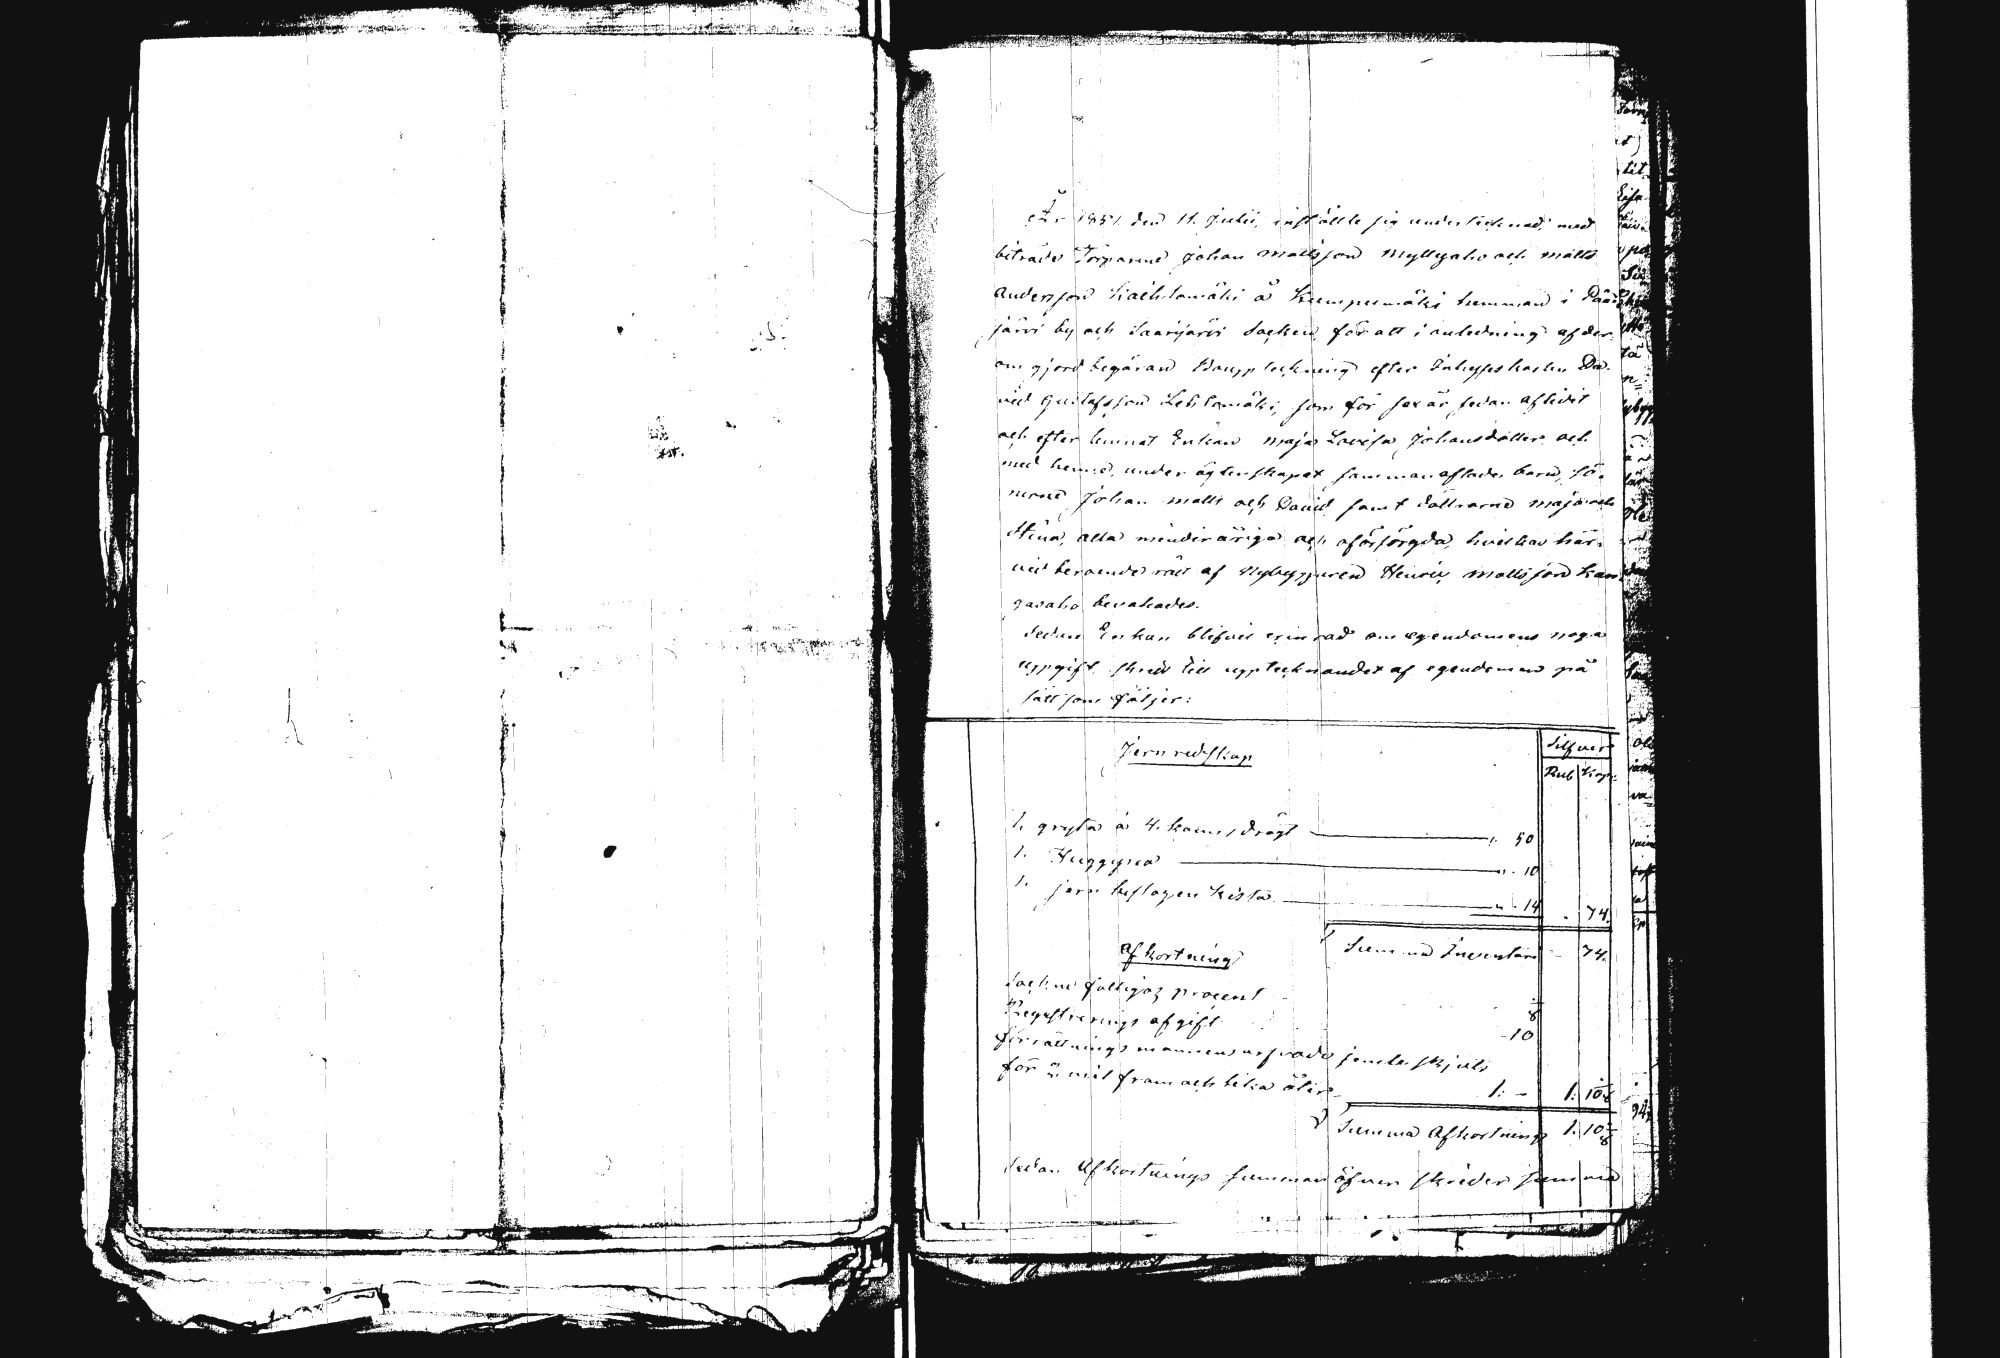 År 1851 den 11. Julii, instälte sig undertecknad med
biträde Torparene Johan Mattsson Myllyaho och Matts
Andersson Kaihlamäki å Kumpumäki hemman i Pää-
järvi by och Saarijärvi Socken, för att i anledning af der-
om gjord begäran Bouppteckning efter Inhyseskarlen Da-
vid Gustafsson Lehtomäki, som för sex år sedan aflidit
och efter lemnat Enkan Maja Lovisa Johansdotter och
med henne under ägtenskapet sammanaflade barn, Sö-
nerne Johan Matts och David samt döttrarne Maja och
Stina, alla minderåriga och oförsörgda, hvilkas här-
vid beroende rätt af Nybyggaren Henric Mattsson Kan-
gasaho bevakades.
Sedan Enkan blifvit erinrad om egendomens noga
uppgift skreds till upptecknandet af egendomen på
sätt som följer:
Silfver
Jern redskap
Rub Kop:
1. gryta à 4. kann, drägt " 50
1. Huggyxa " 10
1. jern beslagen Kista " 14 - 74.
Summa Inventarii - 74.
Afkortning
Sockne fattigas procent
Registrerings afgift - 10
förrättnings mannens arfvode jemte skjuts
för mil fram och tilbaka 1. - 1. 10
Summa Afkortning 1. 10
Sedan Afkortnings summan öfver skrider summa